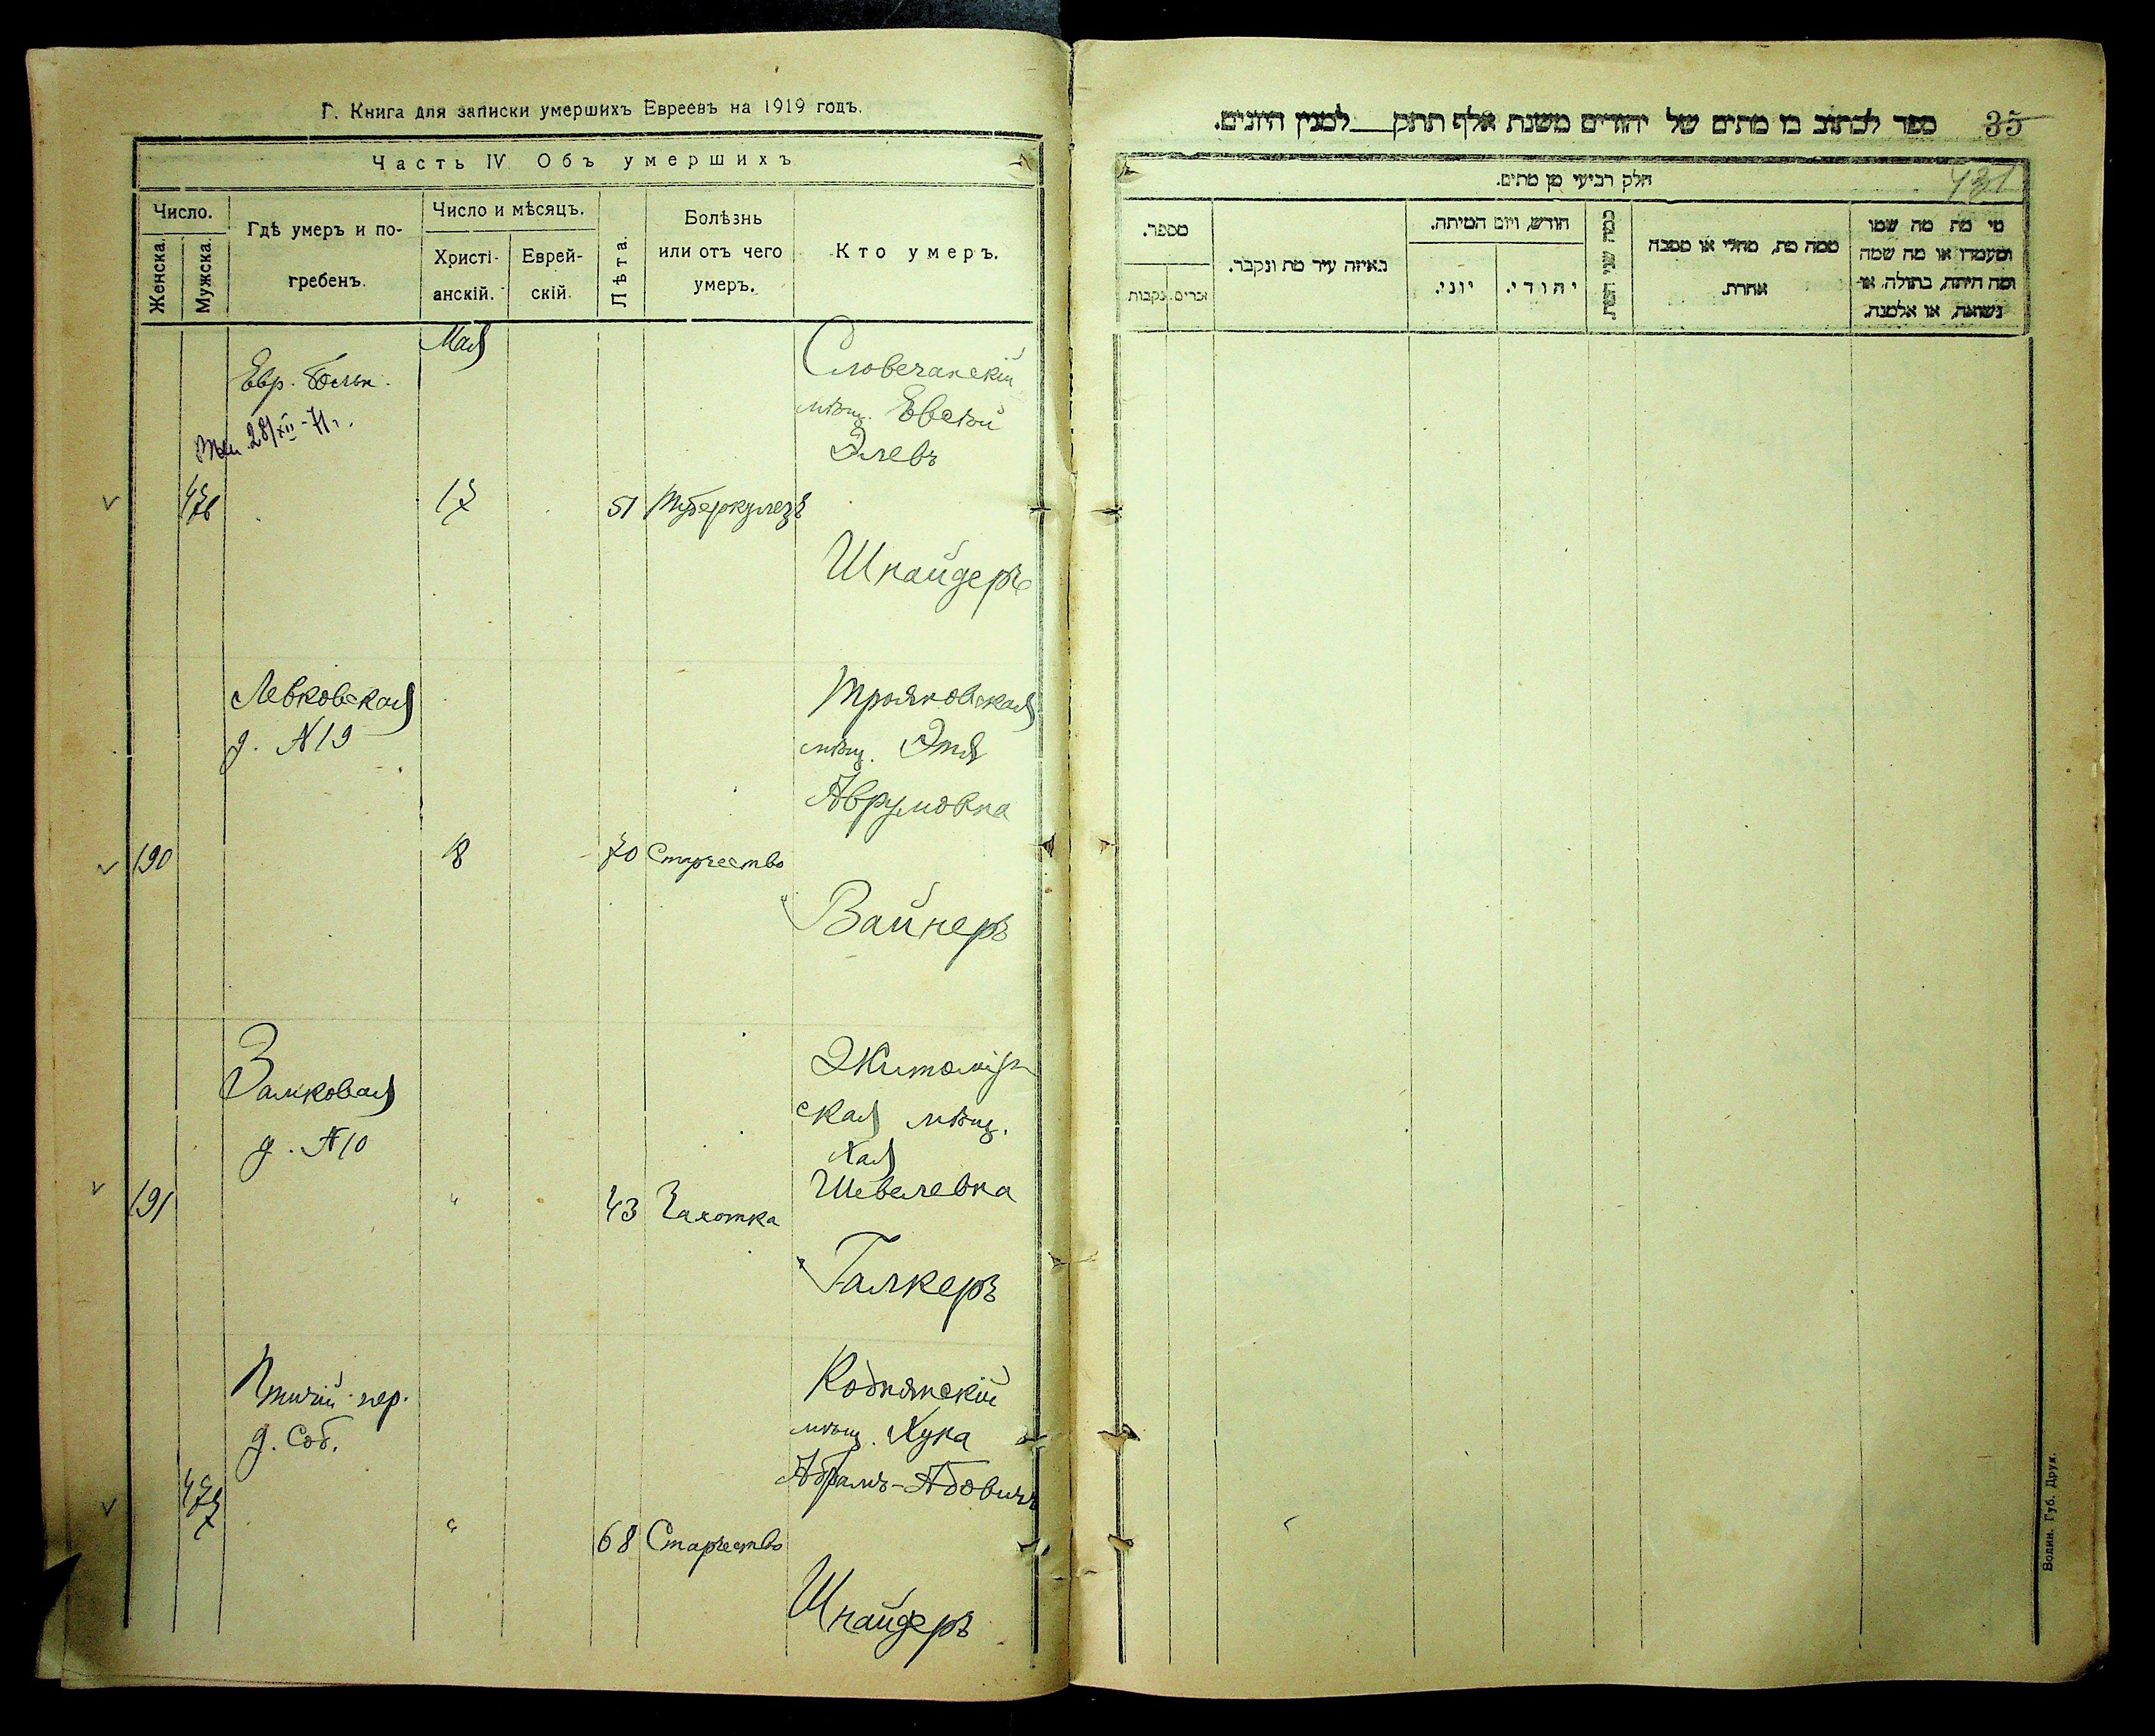 Г. Книга для записки умершихъ Евреевъ на 1919 годъ.
Часть IV. Объ умершихъ
Число.
Женска.
Мужска.
Гдѣ умеръ и по-
гребенъ.
Число и мѣсяцъ.
Христі-
анскій.
Еврей-
скій.
Лѣта.
Болѣзнь
или отъ чего
умеръ.
Кто умеръ.
Мая
Евр. больн.
28/XII-71г.
476
17
51
Туберкулезъ
Словечанскій
мѣщ. Евсѣй
Элевъ
Шнайдеръ
Левковская
д. №19
190
18
70
Старчество
Трояновская
мѣщ. Этя
Аврумовна
Вайнеръ
Замковая
д. №10
191
"
43
Чахотка
Житомір
ская мѣщ.
Хая
Шевелевна
Галкеръ
Птичій пер.
д. Соб.
477
"
68
Старчество
Коднянскій
мѣщ. Нука
Абрамъ-Абовичъ
Шнайдеръ
ספר לכתוב בו מתים של יהודים משנת אלף תתק למנין היונים.
35
חלק רביעי מן מתים.
431
מספר.
זכרים.
נקבות
באיזה עיר מת ונקבר.
חודש, ויום המיתה.
יוני.
יהודי.
כמה שני המת.
ממה מת, מחלי או מסבה
אחרת.
מי מת מה שמו
ומעמדו או מה שמה
ומה היתה, בתולה, או
נשואה, או אלמנה.
Волын. Губ. Друк.